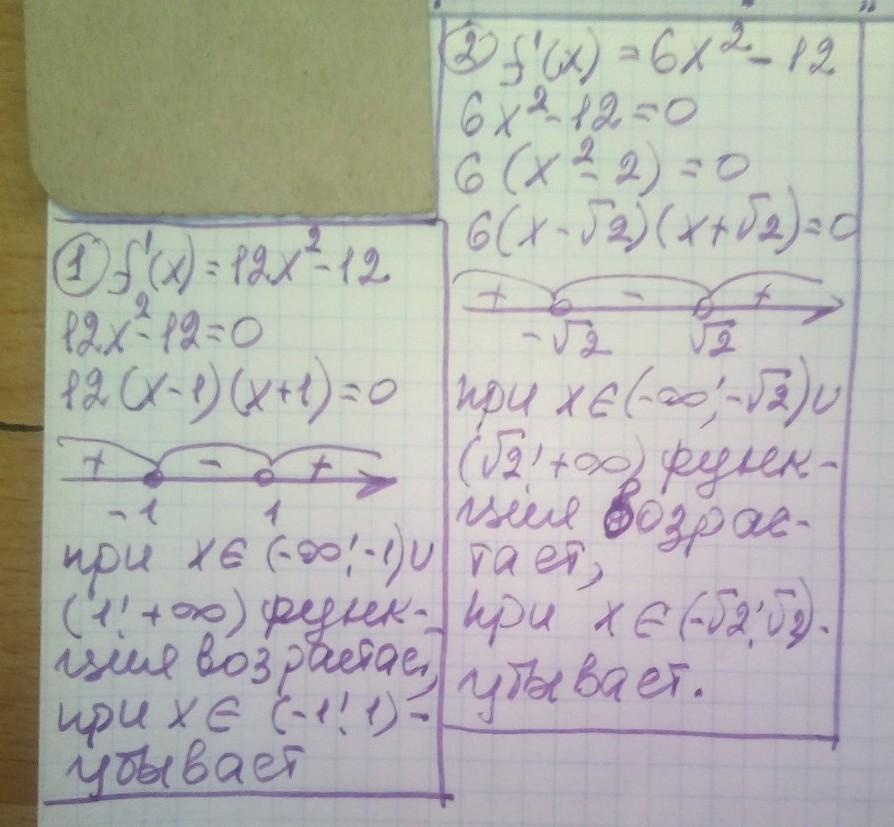 ① f'(x) = 12x² - 12
12x² - 12 = 0
12(x-1)(x+1) = 0
+ - +
-1 1
при x ∈ (-∞; -1) ∪
(1; +∞) функ-
ция возрастает,
при x ∈ (-1; 1) -
убывает
② f'(x) = 6x² - 12
6x² - 12 = 0
6(x² - 2) = 0
6(x - √2)(x + √2) = 0
+ - +
-√2 √2
при x ∈ (-∞; -√2) ∪
(√2; +∞) функ-
ция возрас-
тает,
при x ∈ (-√2; √2) -
убывает.